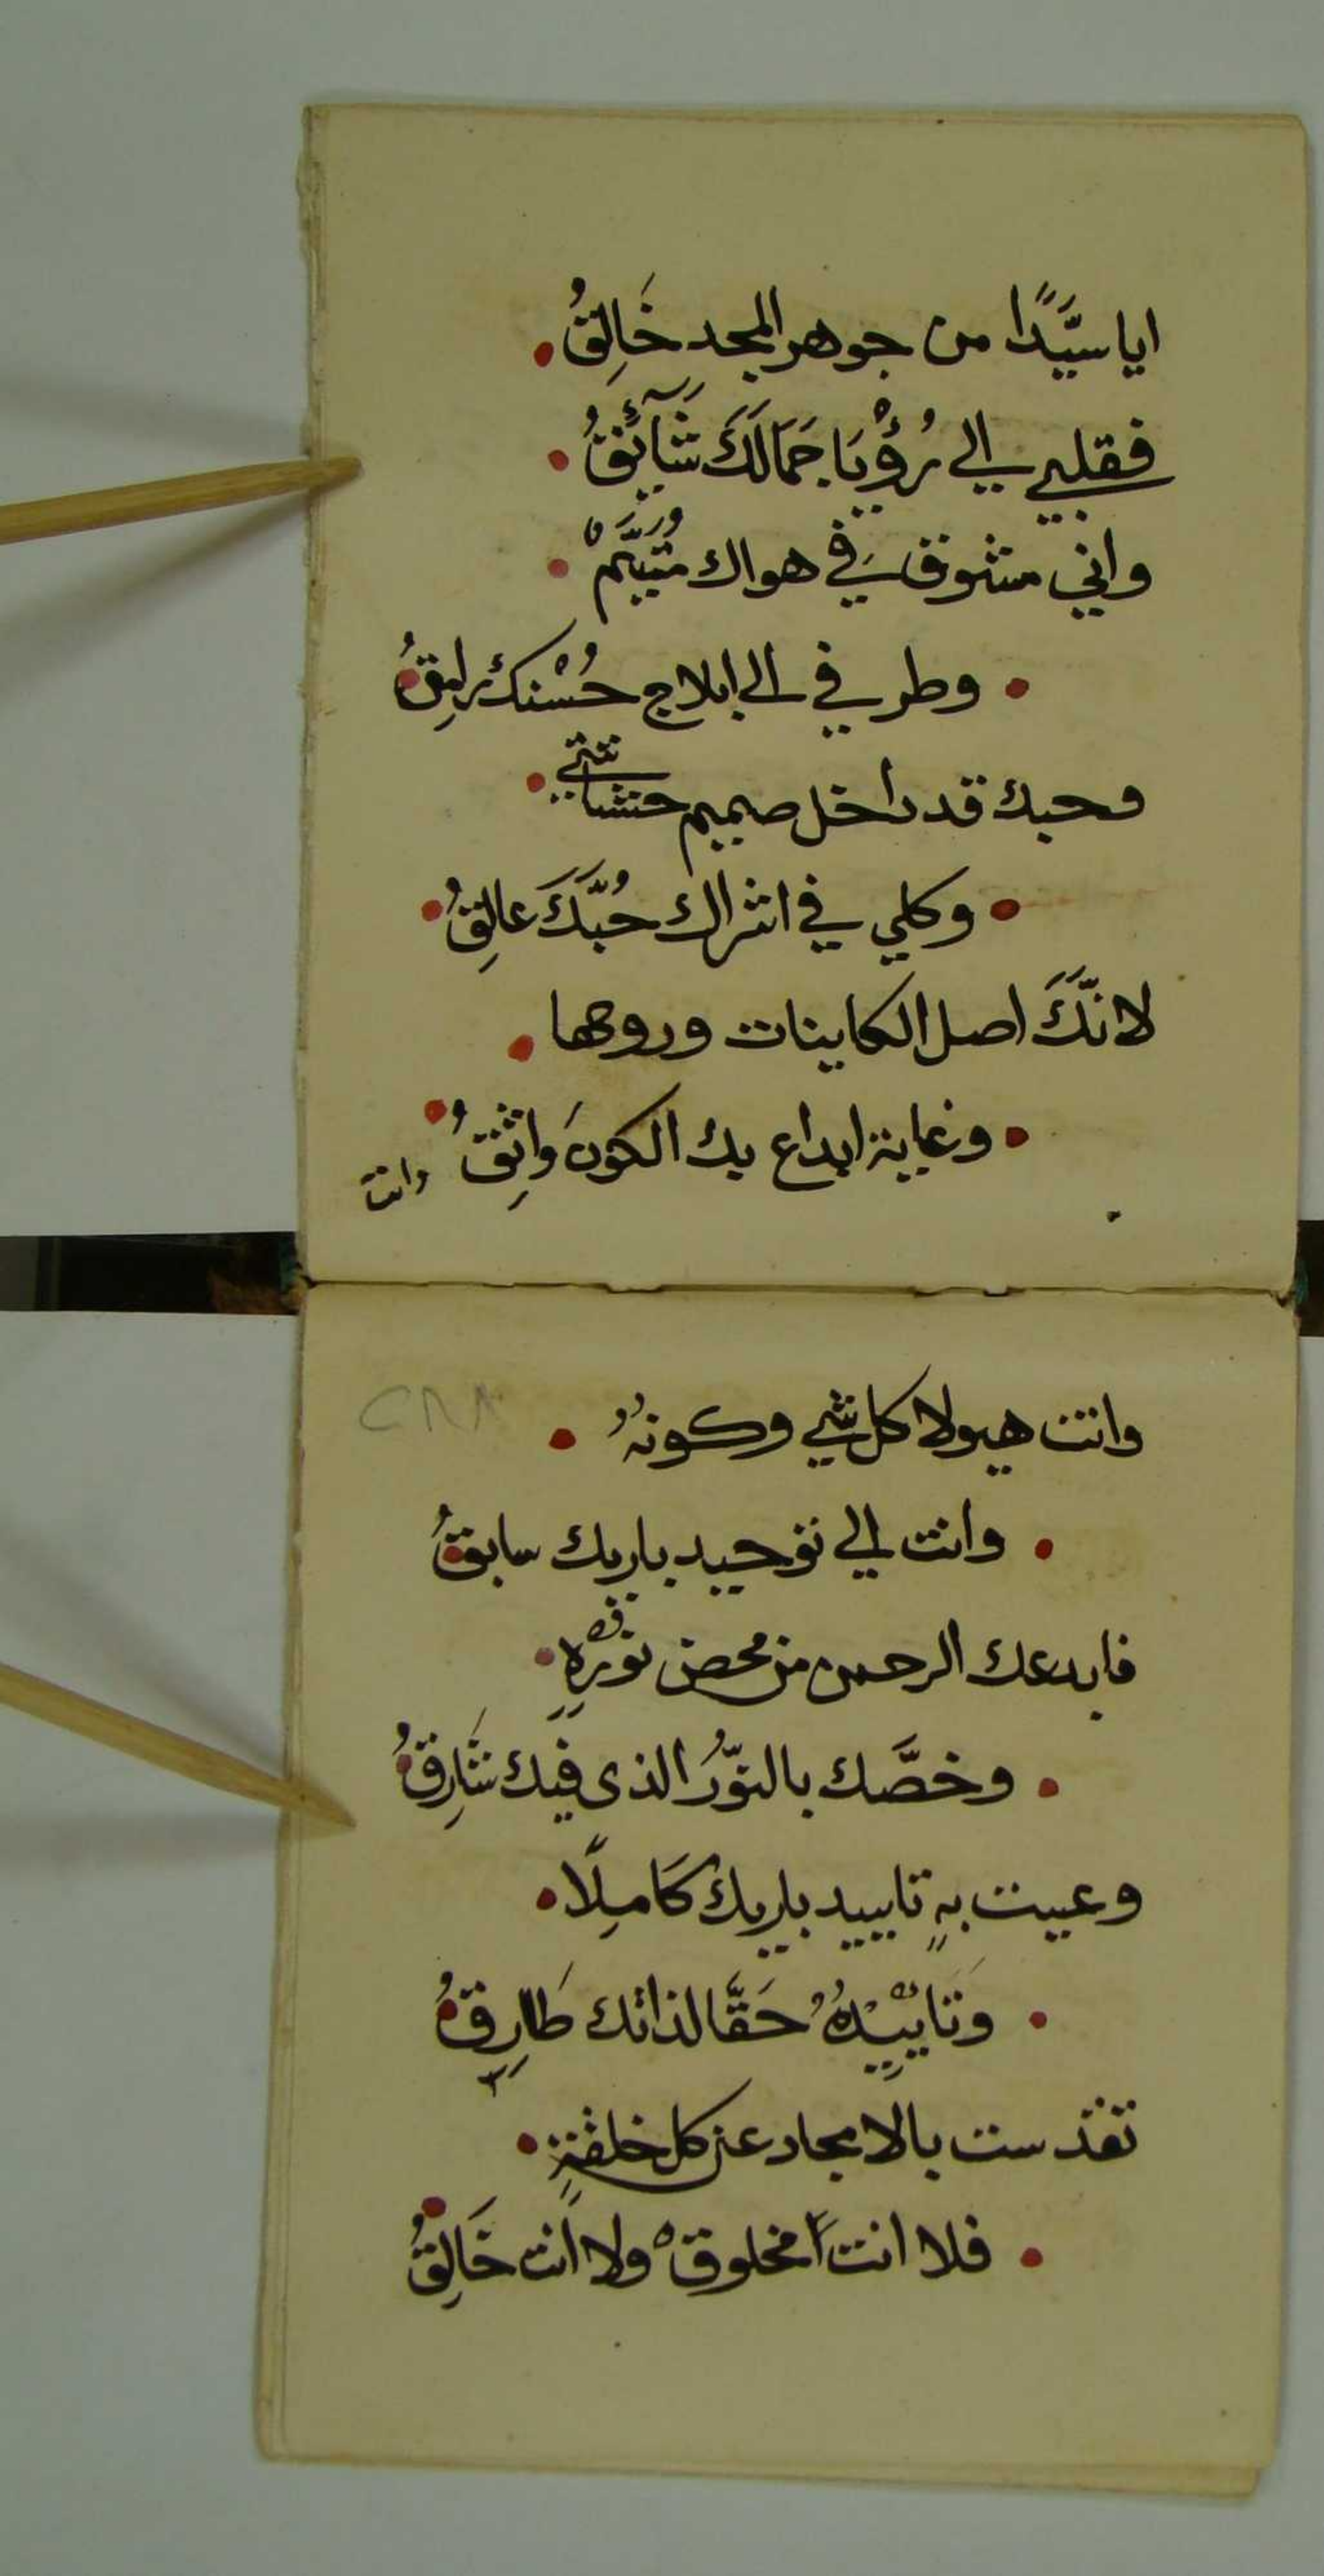 ايا سيَّدًا من جوهر المجد خَالِقُ
فقلبي الي رُؤْيَا جَمَالَكَ شَآئِقُ
واني مشوق في هواك مُتَيَّمْ
وطرفي الي ابلاج حُسْنك رامِقُ
وحبك قد داخل صميم حشاشتي
وكلي في اشراك حُبَّكَ عالِقُ
لانَّكَ اصل الكاينات وروحها
وغاية ابداع بك الكونَ واثِقُ
وانت
وانت هيولا كل شي وكونهُ
وانت الي توحيد باريك سابقُ
فابدعك الرحمن من محض نوْرِهِ
وخصَّك بالنوّرُ الذي فيك شَارِقُ
وعيت بهِ تاييد باريك كَاملًا
وَتَاييْدهُ حَقَّا لذاتك طَارِقُ
تقدست بالامجاد عن كل خلقةٍ
فلا انت مخلوقْ ولا انت خَالِقُ